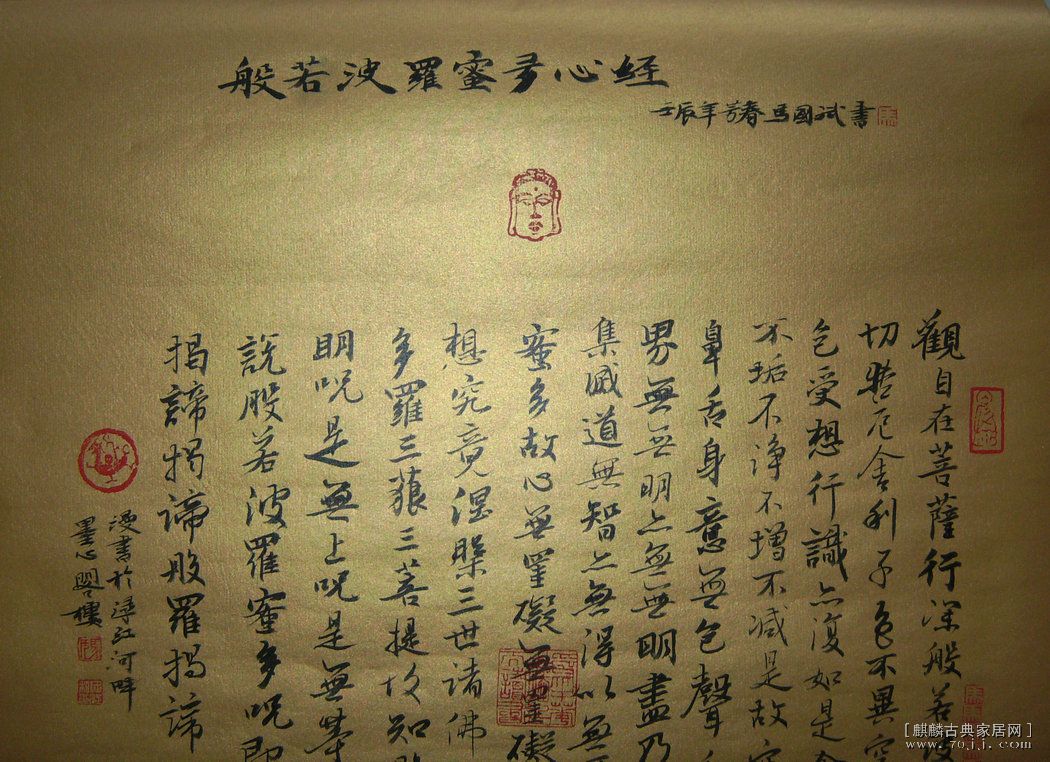 般若波羅蜜多心经
壬辰年芳春馬國斌書
觀自在菩薩行深般若波
切苦厄舍利子色不異空
色受想行識亦復如是舍
不垢不淨不增不减是故空
鼻舌身意無色聲香
界無無明亦無無明盡乃
集滅道無智亦無得以無
蜜多故心無罣礙無罣礙
想究竟涅槃三世諸佛
多羅三藐三菩提故知般
明咒是無上咒是無等
說般若波羅蜜多咒即
揭諦揭諦般羅揭諦
漫書於潯江河畔
墨心閣樓
[麒麟古典家居网]
www.70jj.com